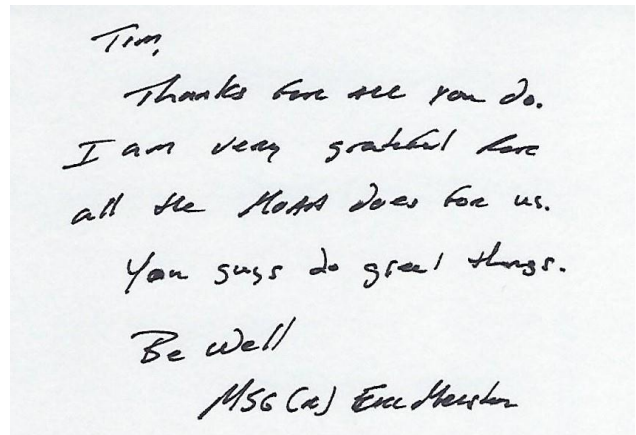 Tim,
Thanks for all you do.
I am very grateful for
all the MOAA does for us.
You guys do great things.
Be Well
MSG (R) Eric